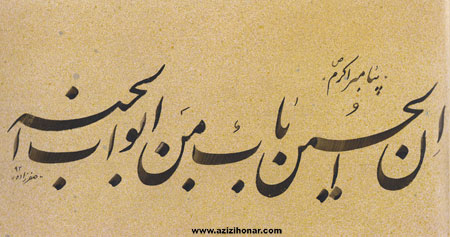 پیامبر اکرم ص
ان الحسین باب من ابواب الجنه
۹۲
www.azizihonar.com